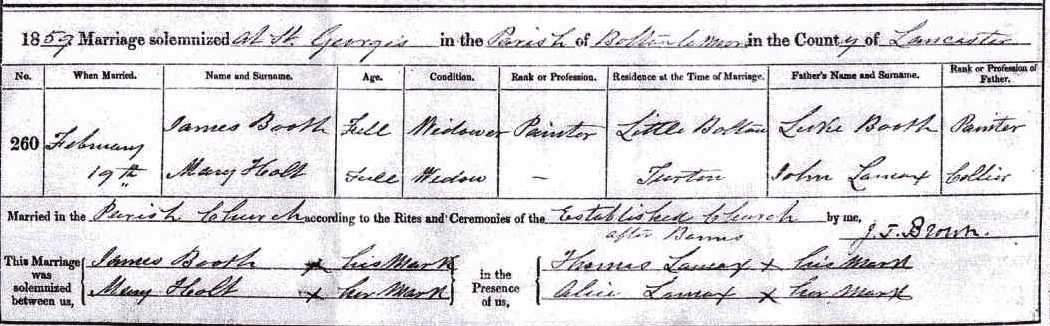 1859 Marriage solemnized at St. George's in the Parish of Bolton le Moors in the County of Lancaster
No. When Married. Name and Surname. Age. Condition. Rank or Profession. Residence at the Time of Marriage. Father's Name and Surname. Rank or Profession of Father.
260 February 19th
James Booth Full Widower Painter Little Bolton Luke Booth Painter
Mary Holt Full Widow – Turton John Lomax Collier
Married in the Parish Church according to the Rites and Ceremonies of the Established Church by me,
after Banns J. T. Brown.
This Marriage was solemnized between us,
James Booth x his Mark
Mary Holt x her Mark
in the Presence of us,
Thomas Lomax x his Mark
Alice Lomax x her Mark